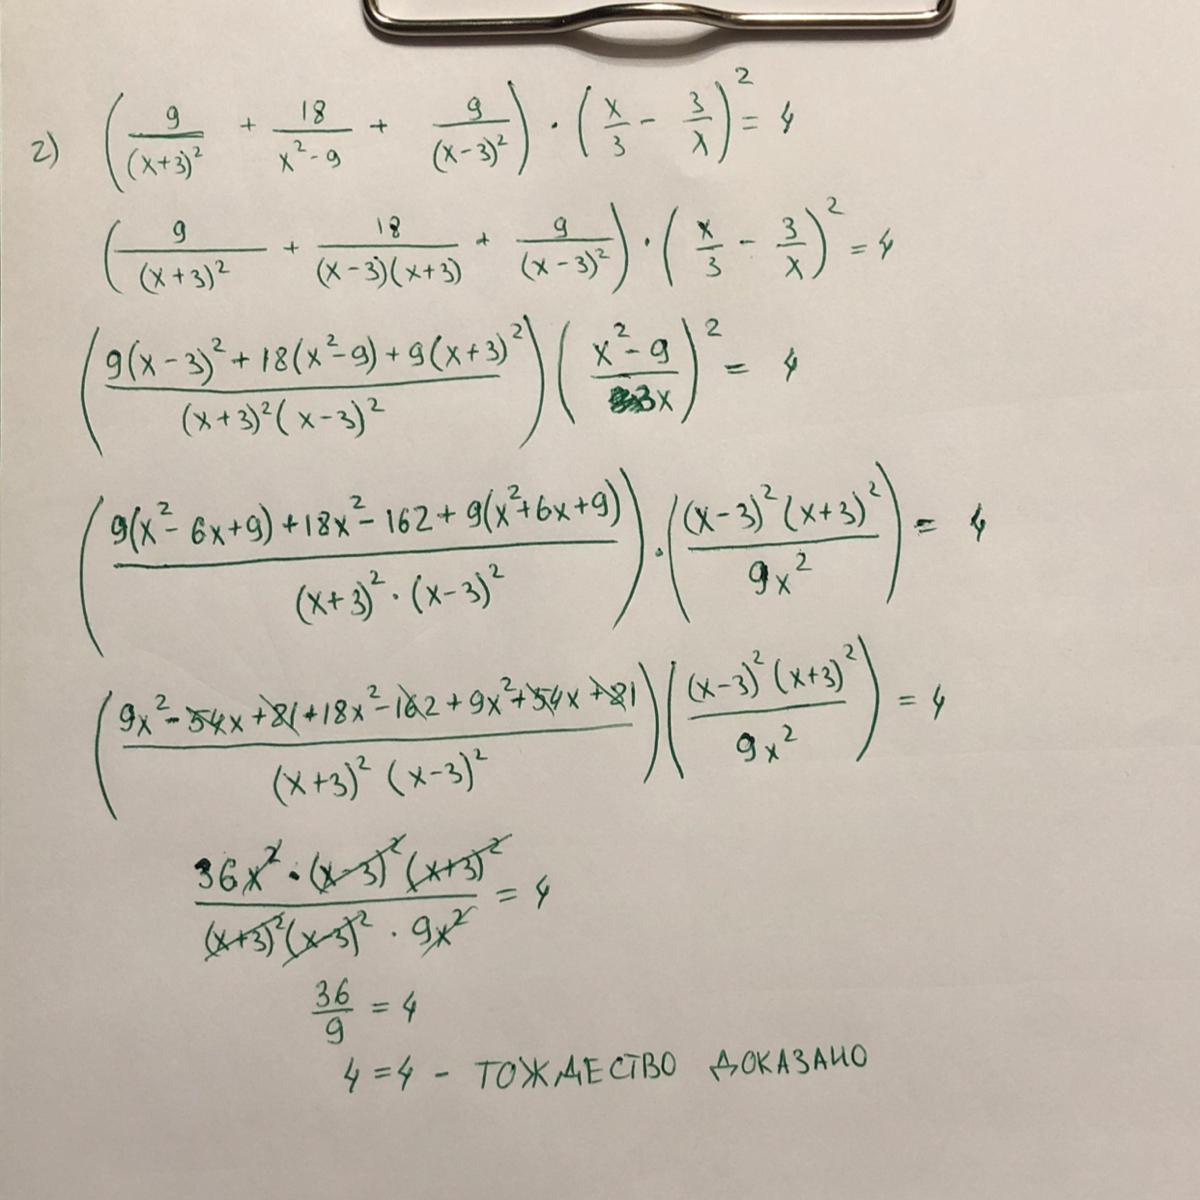 2) (9/(x+3)² + 18/(x²-9) + 9/(x-3)²) · (x/3 - 3/x)² = 4
(9/(x+3)² + 18/((x-3)(x+3)) + 9/(x-3)²) · (x/3 - 3/x)² = 4
((9(x-3)² + 18(x²-9) + 9(x+3)²)/((x+3)²(x-3)²)) ((x²-9)/(3x))² = 4
((9(x²-6x+9) + 18x² - 162 + 9(x²+6x+9))/((x+3)² · (x-3)²)) · ((x-3)²(x+3)²/(9x²)) = 4
((9x² - 54x + 81 + 18x² - 162 + 9x² + 54x + 81)/((x+3)² (x-3)²)) ((x-3)² (x+3)²/(9x²)) = 4
(36x² · (x-3)² (x+3)²)/((x+3)² (x-3)² · 9x²) = 4
36/9 = 4
4 = 4 - ТОЖДЕСТВО ДОКАЗАНО